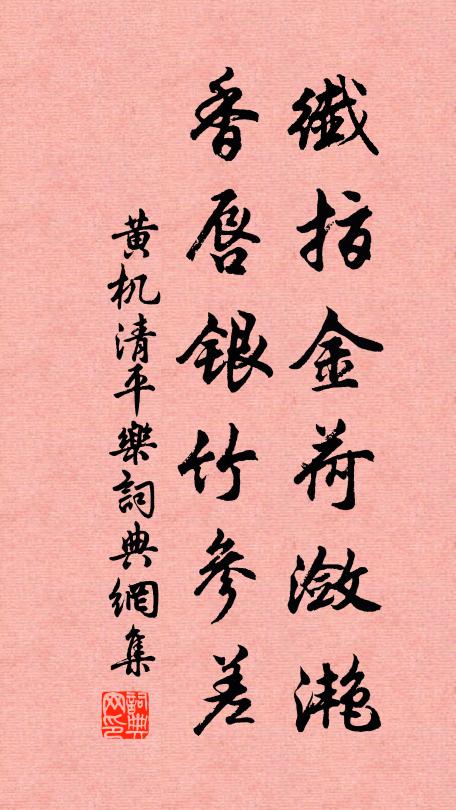 纖指金荷瀲灩
香唇銀竹參差
黄机清平樂詞典網集
詞典网印